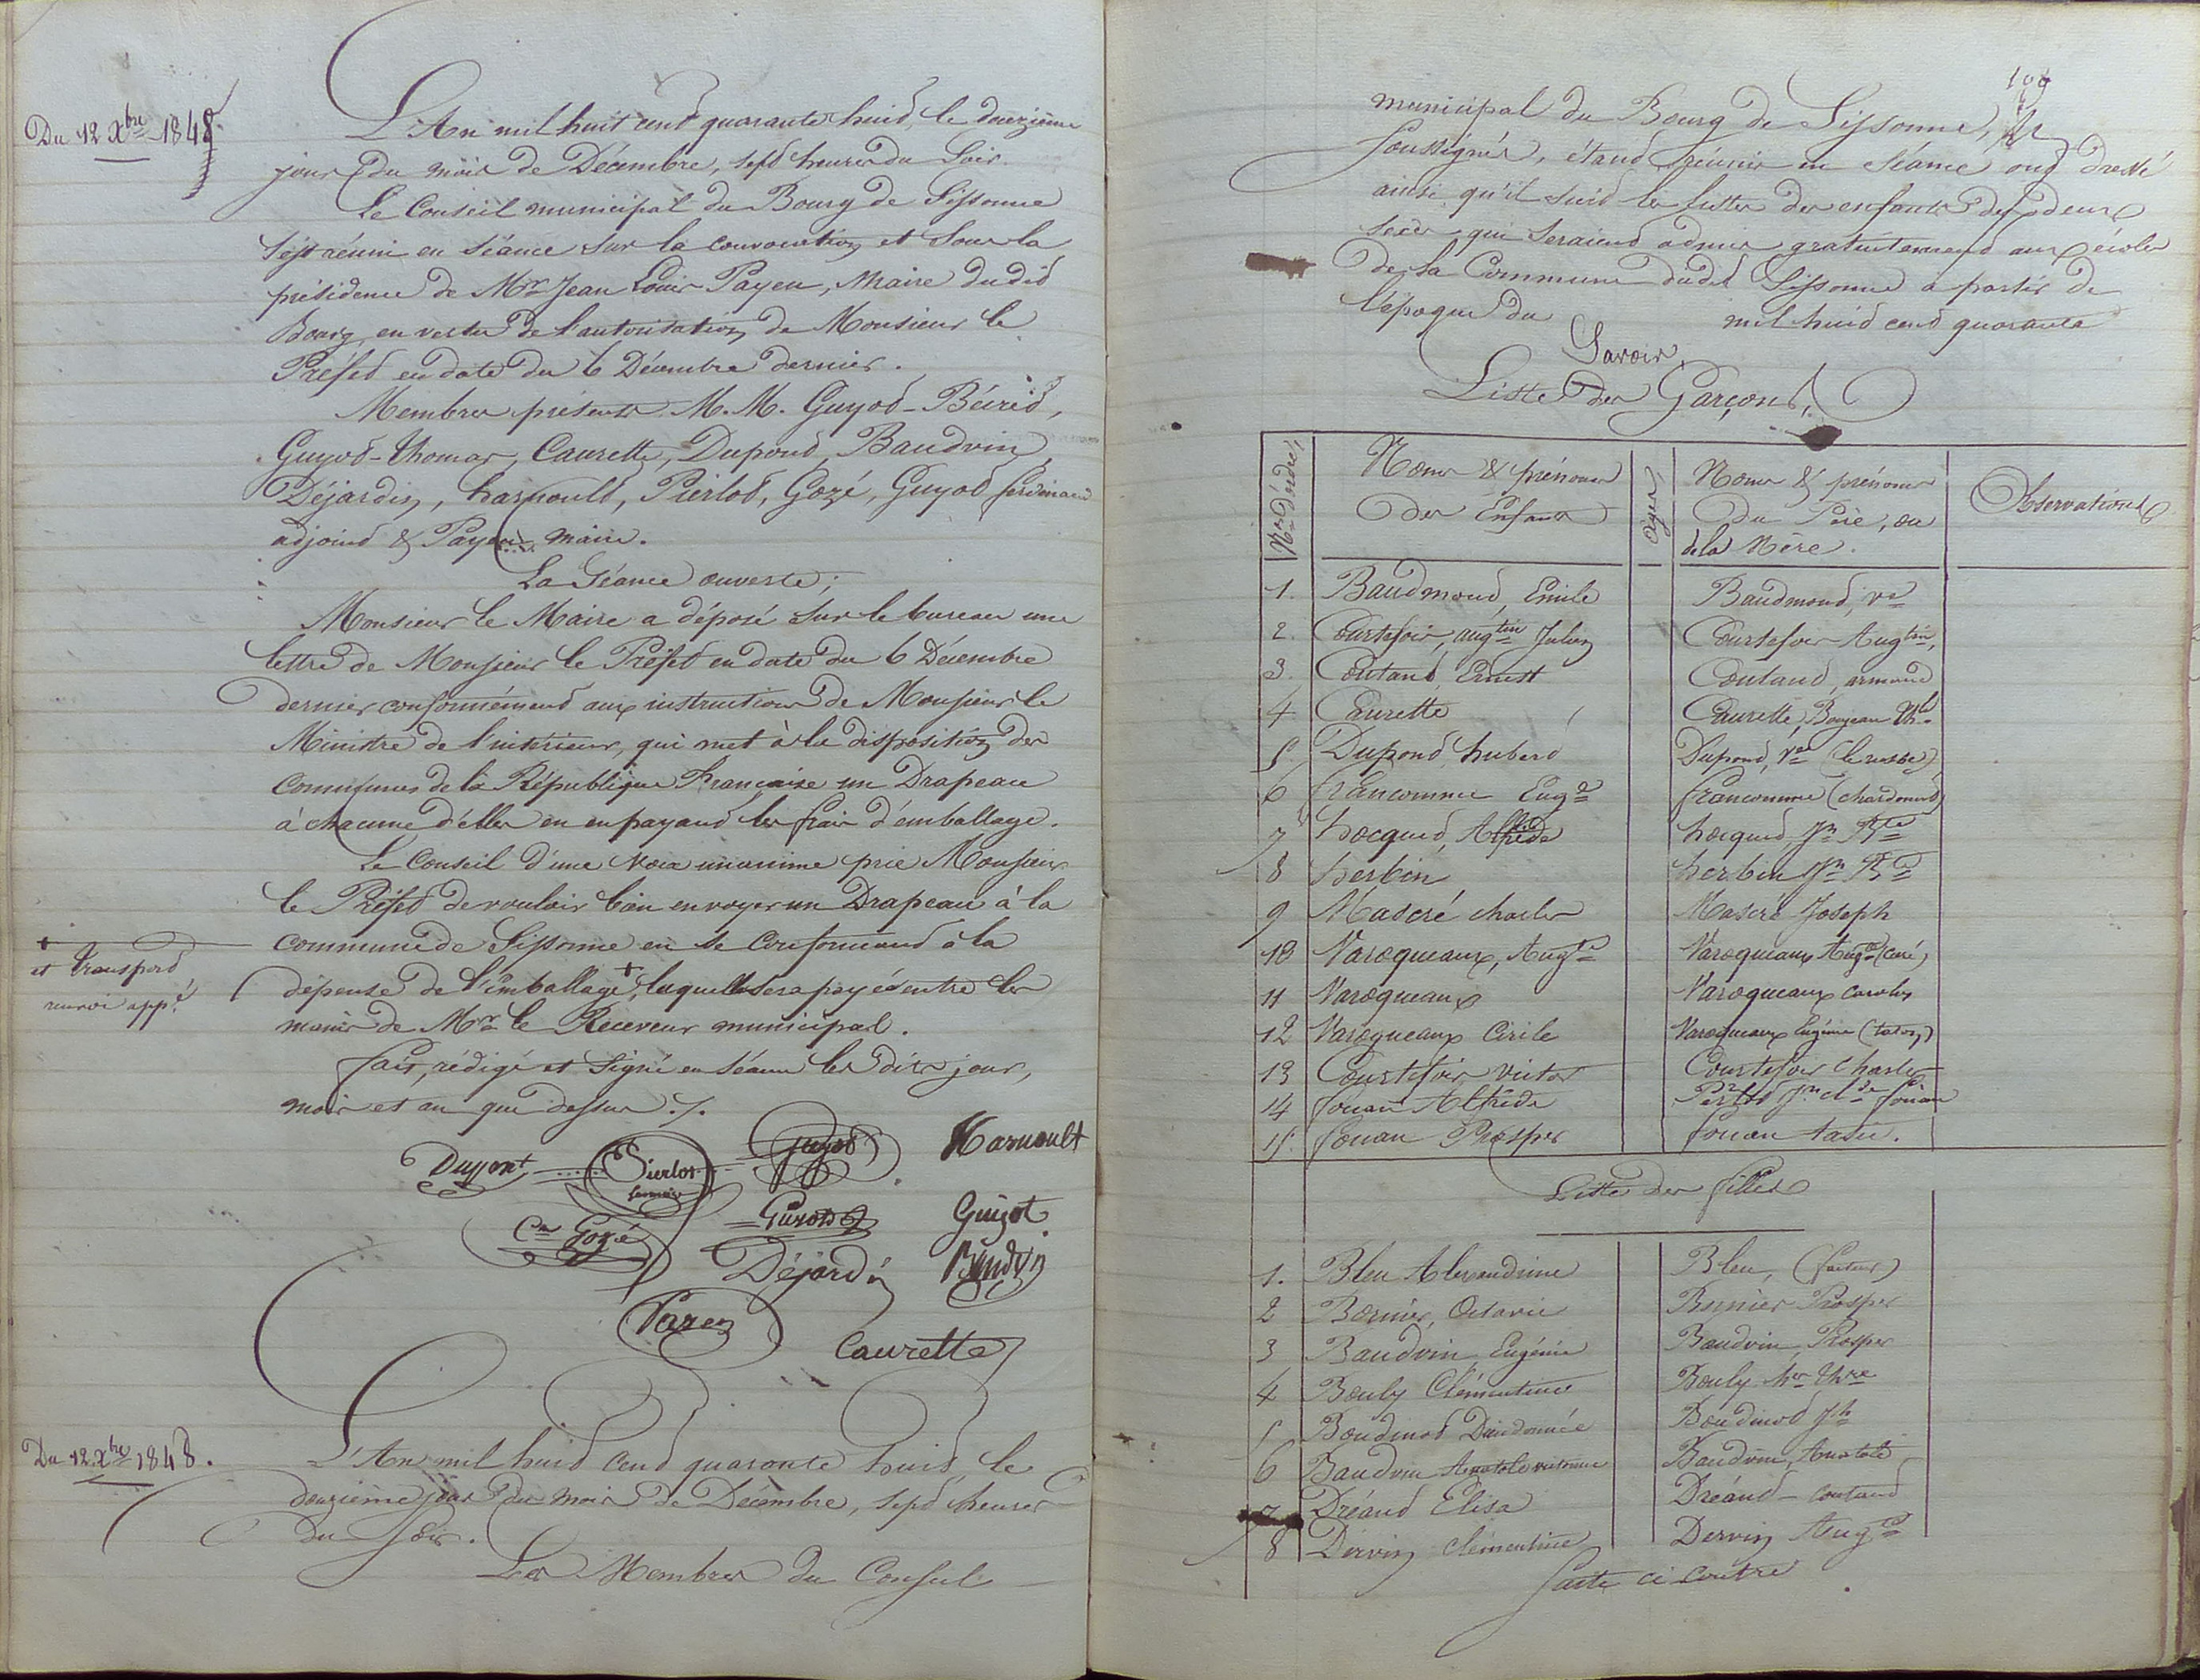 Du 12 Xbre 1848.
L'An mil huit cent quarante huit, le douzième
jour du mois de Décembre, sept heures du Soir.
Le Conseil municipal du Bourg de Sissonne
s'est réuni en Séance sur la convocation et sous la
présidence de Mr Jean Louis Payen, Maire dudit
Bourg en vertu de l'autorisation de Monsieur le
Préfet en date du 6 Décembre dernier.
Membres présents M.M. Guyot-Béirid,
Guyot-Thomas, Caurette, Dupont, Baudvin
Déjardin, harnoult, Pierlot, Gozé, Guyot ferdinand
adjoint & Payen maire.
La Séance ouverte;
Monsieur le Maire a déposé sur le bureau une
lettre de Monsieur le Préfet en date du 6 Décembre
dernier conformément aux instructions de Monsieur le
Ministre de l'intérieur, qui met à la disposition des
communes de la République Française un Drapeau
à chacune d'elles en en payant les frais d'emballage.
Le Conseil d'une voix unanime prie Monsieur
le Préfet de vouloir bien envoyer un Drapeau à la
commune de Sissonne en se conformant à la
dépense de l'emballage +, laquelle sera payée entre les
+
et transport
renvoi appé
mains de Mr le Receveur municipal.
fait, rédigé et signé en séance les dits jour,
mois et an que dessus ./.
Dupont Pierlot Guyot Harnoult
Cn Gozé Guyot Guyot
Déjardin Baudvin
Payen
Caurette
Du 12 Xbre 1848.
L'An mil huit cent quarante huit, le
douzième jour du mois de Décembre, sept heures
du Soir.
Les Membres du Conseil
199
municipal du Bourg de Sissonne,
Soussignés, étant réunis en Séance ont dressé
ainsi qu'il suit les listes des enfants des deux
sexes qui seraient admis gratuitement aux écoles
de la Commune dudit Sissonne à partir de
l'époque du mil huit cent quarante
Savoir
Liste des Garçons,
Nos d'ordre, Noms & prénoms des Enfants Ages, Noms & prénoms du Père, ou de la Mère. Observations
1. Baudmont, Emile Baudmont, ve
2. Courtefoir, augtin Julien Courtefoir Augtin,
3. Coutant Ernest Coutant, armand
4 Caurette Caurette, Boujeau
5. Dupont, hubert Dupont, Ve
6 francomme Eugne francomme
7 hocquet, Alfrède hocquet, Jn Bte
8 herbin herbin Jn Bte
9 Mascré charles Mascré Joseph
10 Varoqueaux, Augte Varoqueaux Augte
11 Varoqueaux Varoqueaux
12 Varoqueaux Cirile Varoqueaux Eugène
13 Courtefoir victor Courtefoir Charles
14 fouan Alfrède fouan
15. fouan Prosper fouan
Liste des filles
1. Bleu Alexandrine Bleu, (facteur)
2 Bornier, Octavie Bornier Prosper
3 Baudvin Eugénie Baudvin Prosper
4 Bouly Clémentine Bouly
5 Boudinot Dieudonnée Boudinot Jh
6 Baudvin Anatole Baudvin, Anatole
7 Dréaud Elisa Dréaud - coutant
8 Dervin Clémentine Dervin Augte
Suite ci contre